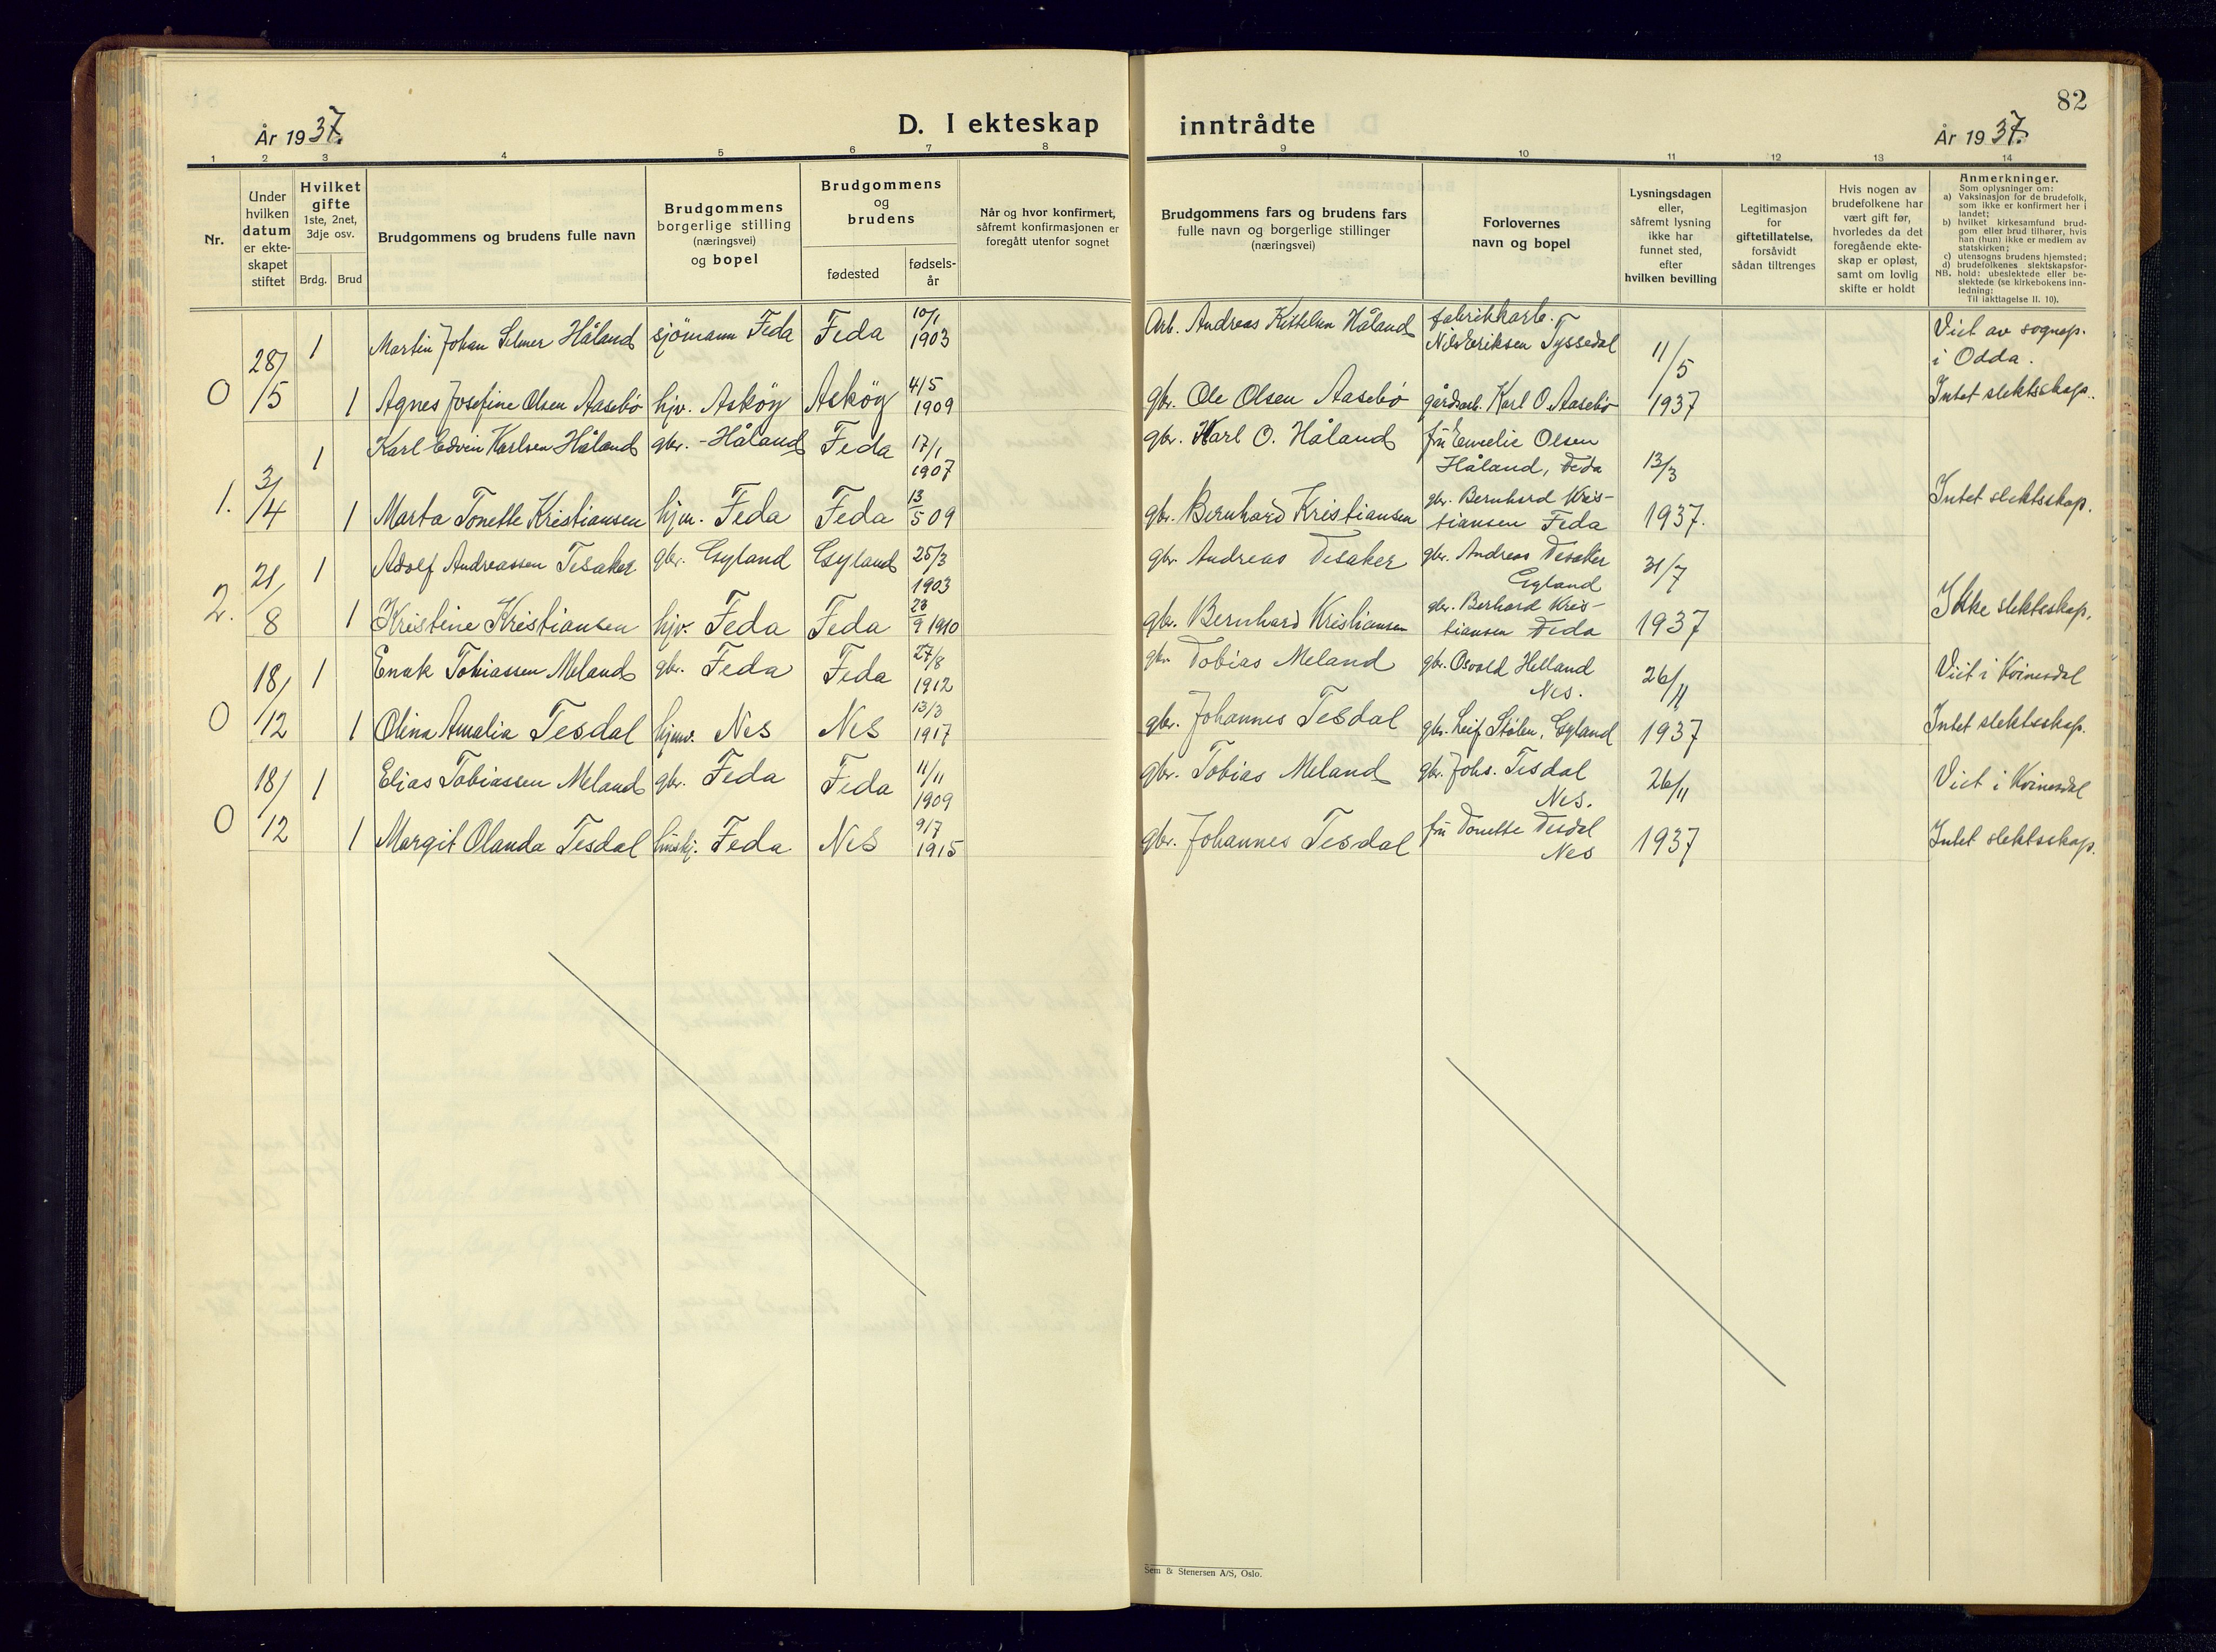 82
År 1937.
D. I ekteskap inntrådte
År 1937.
1 2 3 4 5 6 7 8 9 10 11 12 13 14
Nr.
Under
hvilken
datum
er ekte-
skapet
stiftet
Hvilket
gifte
1ste, 2net,
3dje osv.
Brdg. Brud
Brudgommens og brudens fulle navn
Brudgommens
borgerlige stilling
(næringsvei)
og bopel
Brudgommens
og
brudens
fødested
fødsels-
år
Når og hvor konfirmert,
såfremt konfirmasjonen er
foregått utenfor sognet
Brudgommens fars og brudens fars
fulle navn og borgerlige stillinger
(næringsvei)
Forlovernes
navn og bopel
Lysningsdagen
eller,
såfremt lysning
ikke har
funnet sted,
efter
hvilken bevilling
Legitimasjon
for
giftetillatelse,
forsåvidt
sådan tiltrenges
Hvis nogen av
brudefolkene har
vært gift før,
hvorledes da det
foregående ekte-
skap er opløst,
samt om lovlig
skifte er holdt
Anmerkninger.
Som oplysninger om:
a) Vaksinasjon for de brudefolk,
som ikke er konfirmert her i
landet;
b) hvilket kirkesamfund brud-
gom eller brud tilhører, hvis
han (hun) ikke er medlem av
statskirken;
c) utensogns brudens hjemsted;
d) brudefolkenes slektskapsfor-
hold: ubeslektede eller be-
slektede (se kirkebokens inn-
ledning:
NB. Til iakttagelse II. 10).
0 28/5 1 Martin Johan Selmer Håland sjömann Feda Feda 10/1 1903 Arb. Andreas Kittelsen Håland fabrikkarb. Nils Eriksen Tyssedal 11/5 Viet av sognep. i Odda.
1 Agnes Josefine Olsen Aasebö hjv. Asköy Asköy 4/5 1909 gbr. Ole Olsen Aasebö gårdsarb. Karl O. Aasebö 1937 Intet slektskap.
1. 3/4 1 Karl Edvin Karlsen Håland gbr. - Håland Feda 17/1 1907 gbr. Karl O. Håland fru Emelie Olsen Håland, Feda 13/3
1 Marta Tonette Kristiansen hjv. Feda Feda 13/5 09 gbr. Bernhard Kristiansen gbr. Bernhard Kris- tiansen Feda 1937. Intet slektsskap.
2. 21/8 1 Adolf Andreassen Tesaker gbr. Gyland Gyland 25/3 1903 gbr. Andreas Tesaker gbr. Andreas Tesaker Gyland 31/7
1 Kristine Kristiansen hjv. Feda Feda 23/9 1910 gbr. Bernhard Kristiansen gbr. Berhard Kris- tiansen Feda 1937 Ikke slektsskap.
0 18/12 1 Enok Tobiassen Meland gbr. Feda Feda 27/8 1912 gbr. Tobias Meland gbr. Osvald Helland Nes. 26/11 Viet i Kvinesdal
1 Olina Amalia Tesdal hjmv. Nes Nes 13/3 1917 gbr. Johannes Tesdal gbr. Leif Stölen, Gyland 1937 Intet slektsskap.
0 18/12 1 Elias Tobiassen Meland gbr. Feda Feda 11/11 1909 gbr. Tobias Meland gbr. Johs. Tesdal Nes. 26/11 Viet i Kvinesdal
1 Margit Olanda Tesdal Feda Nes 9/7 1915 gbr. Johannes Tesdal fru Tonette Tesdal Nes 1937 Intet slektsskap.
Sem & Stenersen A/S, Oslo.